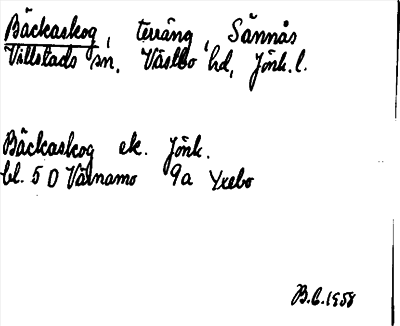 Bäckaskog, teräng, Sännås
Villstads sn. Västbo hd, Jönk. l.
Bäckaskog ek. Jönk.
bl. 5 D Värnamo 9a Yxebo
B.E. 1958